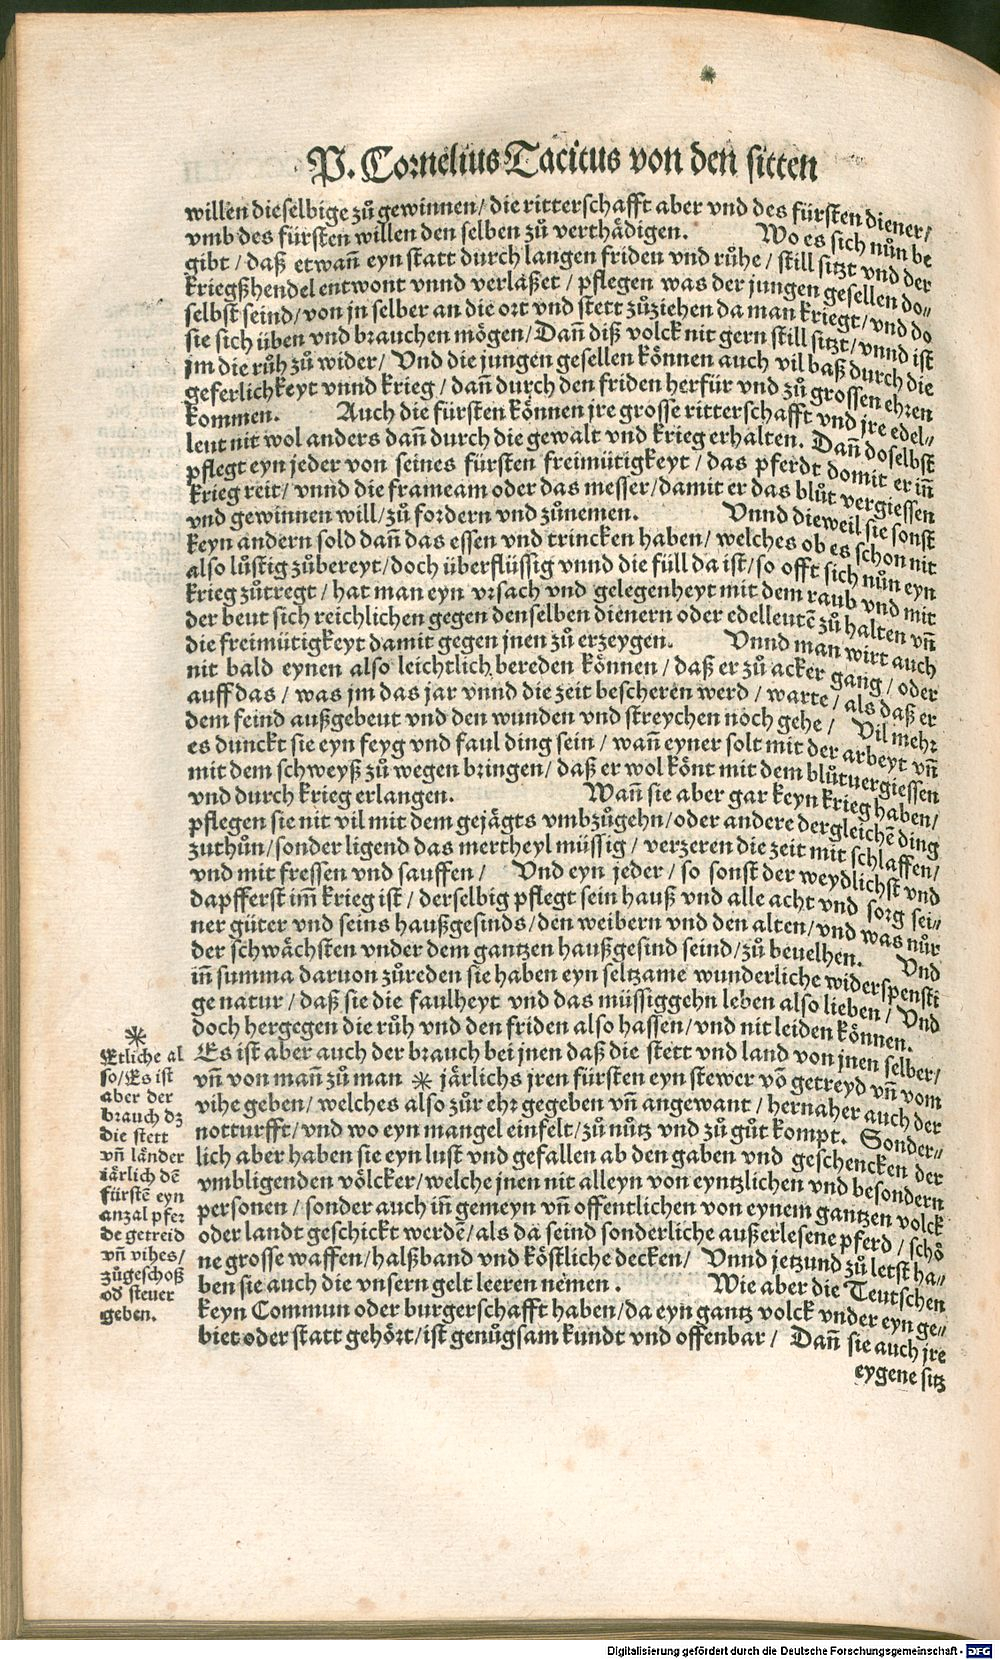 P. Cornelius Tacitus von den sitten
willen dieselbige zů gewinnen / die ritterschafft aber vnd des fürsten diener /
vmb des fürsten willen den selben zů verthädigen. Wo es sich nůn be
gibt / daß etwañ eyn statt durch langen friden vnd růhe / still sitzt vnd der
kriegßhendel entwont vnnd verlaßet / pflegen was der jungen gesellen do⸗
selbst seind / von jn selber an die ort vnd stett zůziehen da man kriegt / vnd do
sie sich üben vnd brauchen mögen / Dañ diß volck nit gern still sitzt / vnnd ist
jm die růh zů wider / Vnd die jungen gesellen können auch vil baß durch die
geferlichkeyt vnnd krieg / dañ durch den friden herfür vnd zů grossen ehren
kommen. Auch die fürsten können jre grosse ritterschafft vnd jre edel⸗
leut nit wol anders dañ durch die gewalt vnd krieg erhalten. Dañ doselbst
pflegt eyn jeder von seines fürsten freimütigkeyt / das pferdt domit er iñ
krieg reit / vnnd die frameam oder das messer / damit er das blůt vergiessen
vnd gewinnen will / zů fordern vnd zůnemen. Vnnd dieweil sie sonst
keyn andern sold dañ das essen vnd trincken haben / welches ob es schon nit
also lůstig zůbereyt / doch überflüssig vnnd die füll da ist / so offt sich nůn eyn
krieg zůtregt / hat man eyn vrsach vnd gelegenheyt mit dem raub vnd mit
der beut sich reichlichen gegen denselben dienern oder edelleutẽ zů halten vñ
die freimütigkeyt damit gegen jnen zů erzeygen. Vnnd man wirt auch
nit bald eynen also leichtlich bereden können / daß er zů acker gang / oder
auff das / was jm das jar vnnd die zeit bescheren werd / warte / als daß er
dem feind außgebeut vnd den wunden vnd streychen noch gehe / Vil mehr
es dunckt sie eyn feyg vnd faul ding sein / wañ eyner solt mit der arbeyt vñ
mit dem schweyß zů wegen bringen / daß er wol könt mit dem blůtuergiessen
vnd durch krieg erlangen. Wañ sie aber gar keyn krieg haben /
pflegen sie nit vil mit dem gejägts vmbzůgehn / oder andere dergleichẽ ding
zuthůn / sonder ligend das mertheyl müssig / verzeren die zeit mit schlaffen /
vnd mit fressen vnd sauffen / Vnd eyn jeder / so sonst der weydlichst vnd
dapfferst im̃ krieg ist / derselbig pflegt sein hauß vnd alle acht vnd sorg sei⸗
ner güter vnd seins haußgesinds / den weibern vnd den alten / vnd was nůr
der schwächsten vnder dem gantzen haußgesind seind / zů beuelhen. Vnd
iñ summa daruon zůreden sie haben eyn seltzame wunderliche widerspensti
ge natur / daß sie die faulheyt vnd das müssiggehn leben also lieben / Vnd
doch hergegen die růh vnd den friden also hassen / vnd nit leiden können.
Es ist aber auch der brauch bei jnen daß die stett vnd land von jnen selber /
vñ von mañ zů man ✳ järlichs jren fürsten eyn stewer võ getreyd vñ vom
vihe geben / welches also zůr ehr gegeben vñ angewant / hernaher auch der
notturfft / vnd wo eyn mangel einfelt / zů nůtz vnd zů gůt kompt. Sonder⸗
lich aber haben sie eyn lust vnd gefallen ab den gaben vnd geschencken der
vmbligenden völcker / welche jnen nit alleyn von eyntzlichen vnd besondern
personen / sonder auch iñ gemeyn vñ offentlichen von eynem gantzen volck
oder landt geschickt werdẽ / als da seind sonderliche außerlesene pferd / schö
ne grosse waffen / halßband vnd köstliche decken / Vnnd jetzund zů letst ha⸗
ben sie auch die vnsern gelt leeren nemen. Wie aber die Teutschen
keyn Commun oder burgerschafft haben / da eyn gantz volck vnder eyn ge⸗
biet oder statt gehört / ist genůgsam kundt vnd offenbar / Dañ sie auch jre
eygene sitz
✳
Etliche al
so / Es ist
aber der
brauch dz
die stett
vñ länder
iärlich dẽ
fürstẽ eyn
anzal pfer
de getreid
vñ vihes /
zůgeschoß
od steuer
geben.
Digitalisierung gefördert durch die Deutsche Forschungsgemeinschaft - DFG